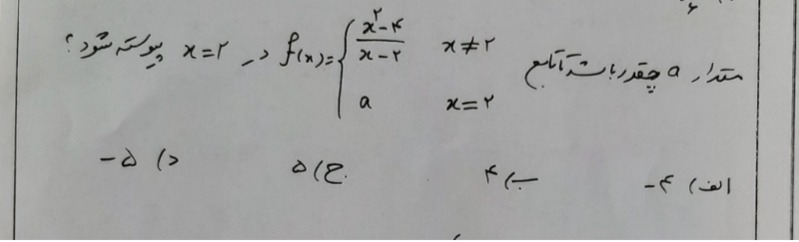 مقدار a چقدر باشد تا تابع f(x)= { (x²-۴)/(x-۲) x≠۲ ; a x=۲ در x=۲ پیوسته شود؟
الف) -۴ ب) ۴ ج) ۵ د) -۵